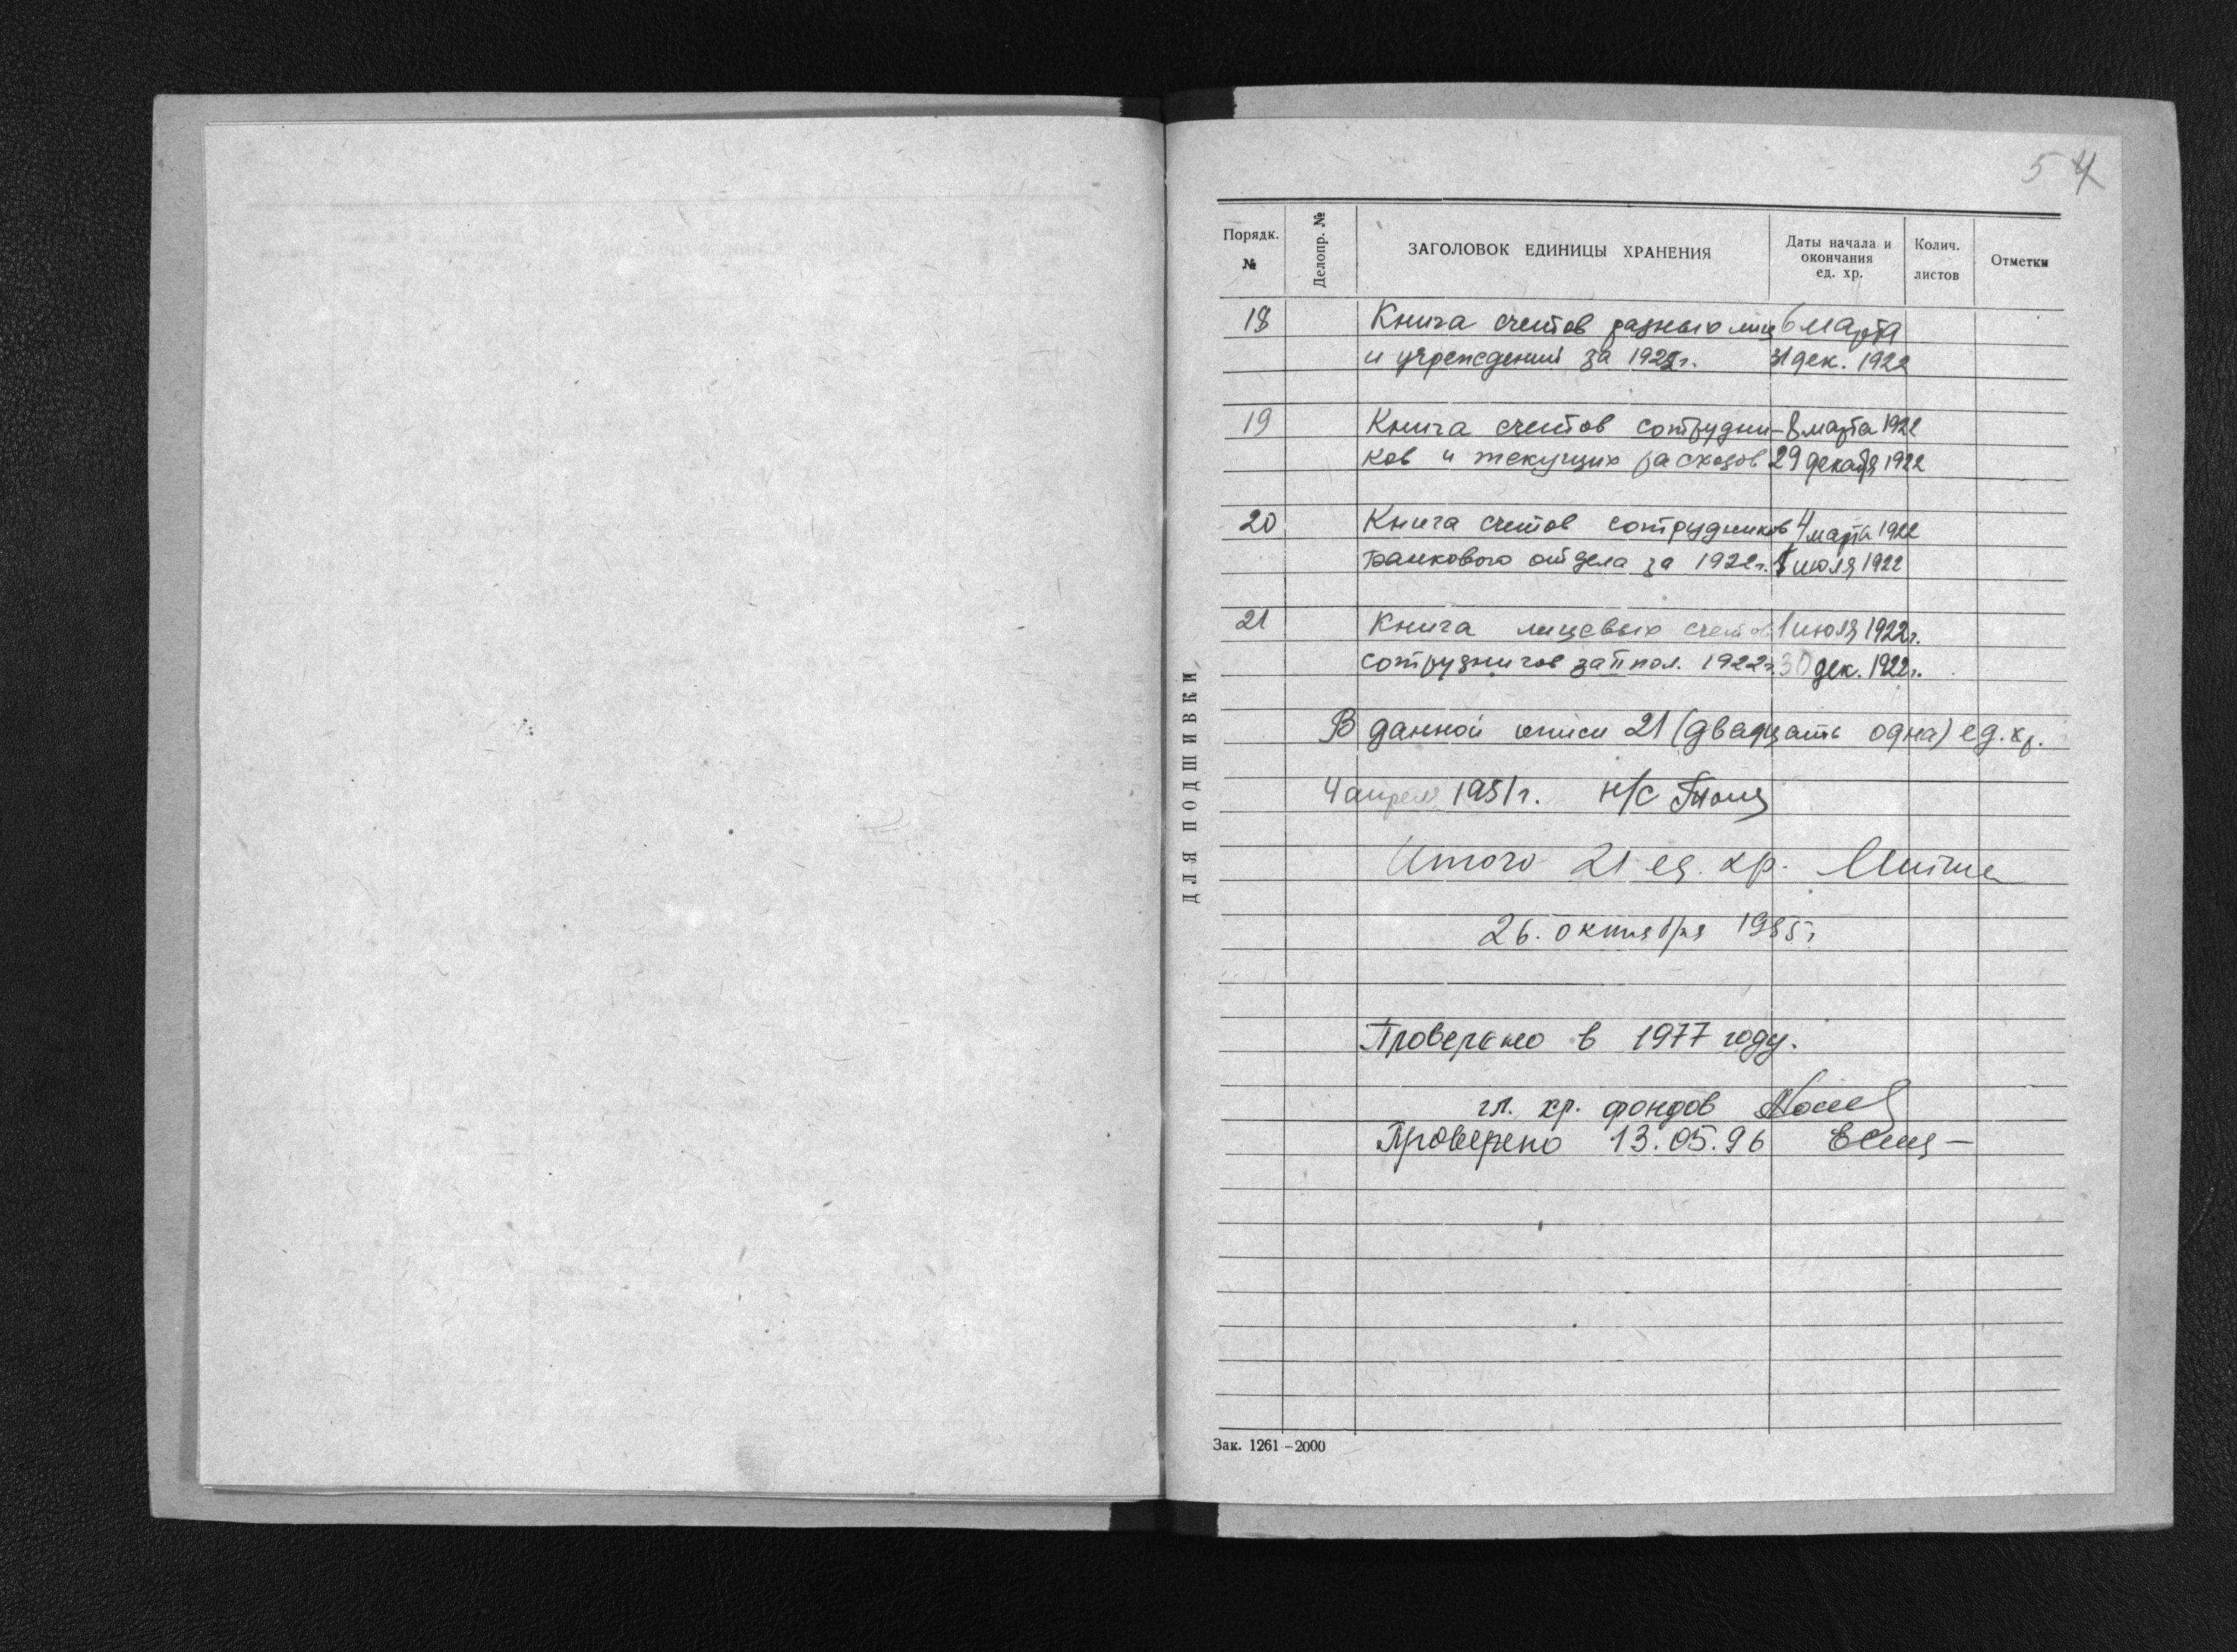 5 4
Порядк. №
Делопр. №
ЗАГОЛОВОК ЕДИНИЦЫ ХРАНЕНИЯ
Даты начала и окончания ед. хр.
Колич. листов
Отметки
18 Книга счетов разных лиц 6 марта
и учреждений за 1922г. 31 дек. 1922
19 Книга счетов сотрудни- 8 марта 1922
ков и текущих расходов 29 декабря 1922
20 Книга счетов сотрудников 4 марта 1922
Банкового отдела за 1922г. 1 июля 1922
21 Книга лицевых счетов 1 июля 1922г.
сотрудников за II пол. 1922г. 30 дек. 1922г.
В данной описи 21 (двадцать одна) ед. хр.
4 апреля 1951г. н/с
Итого 21 ед. хр.
26. октября 1955г
Проверено в 1977 году.
гл. хр. фондов
Проверено 13.05.96
ДЛЯ ПОДШИВКИ
Зак. 1261–2000